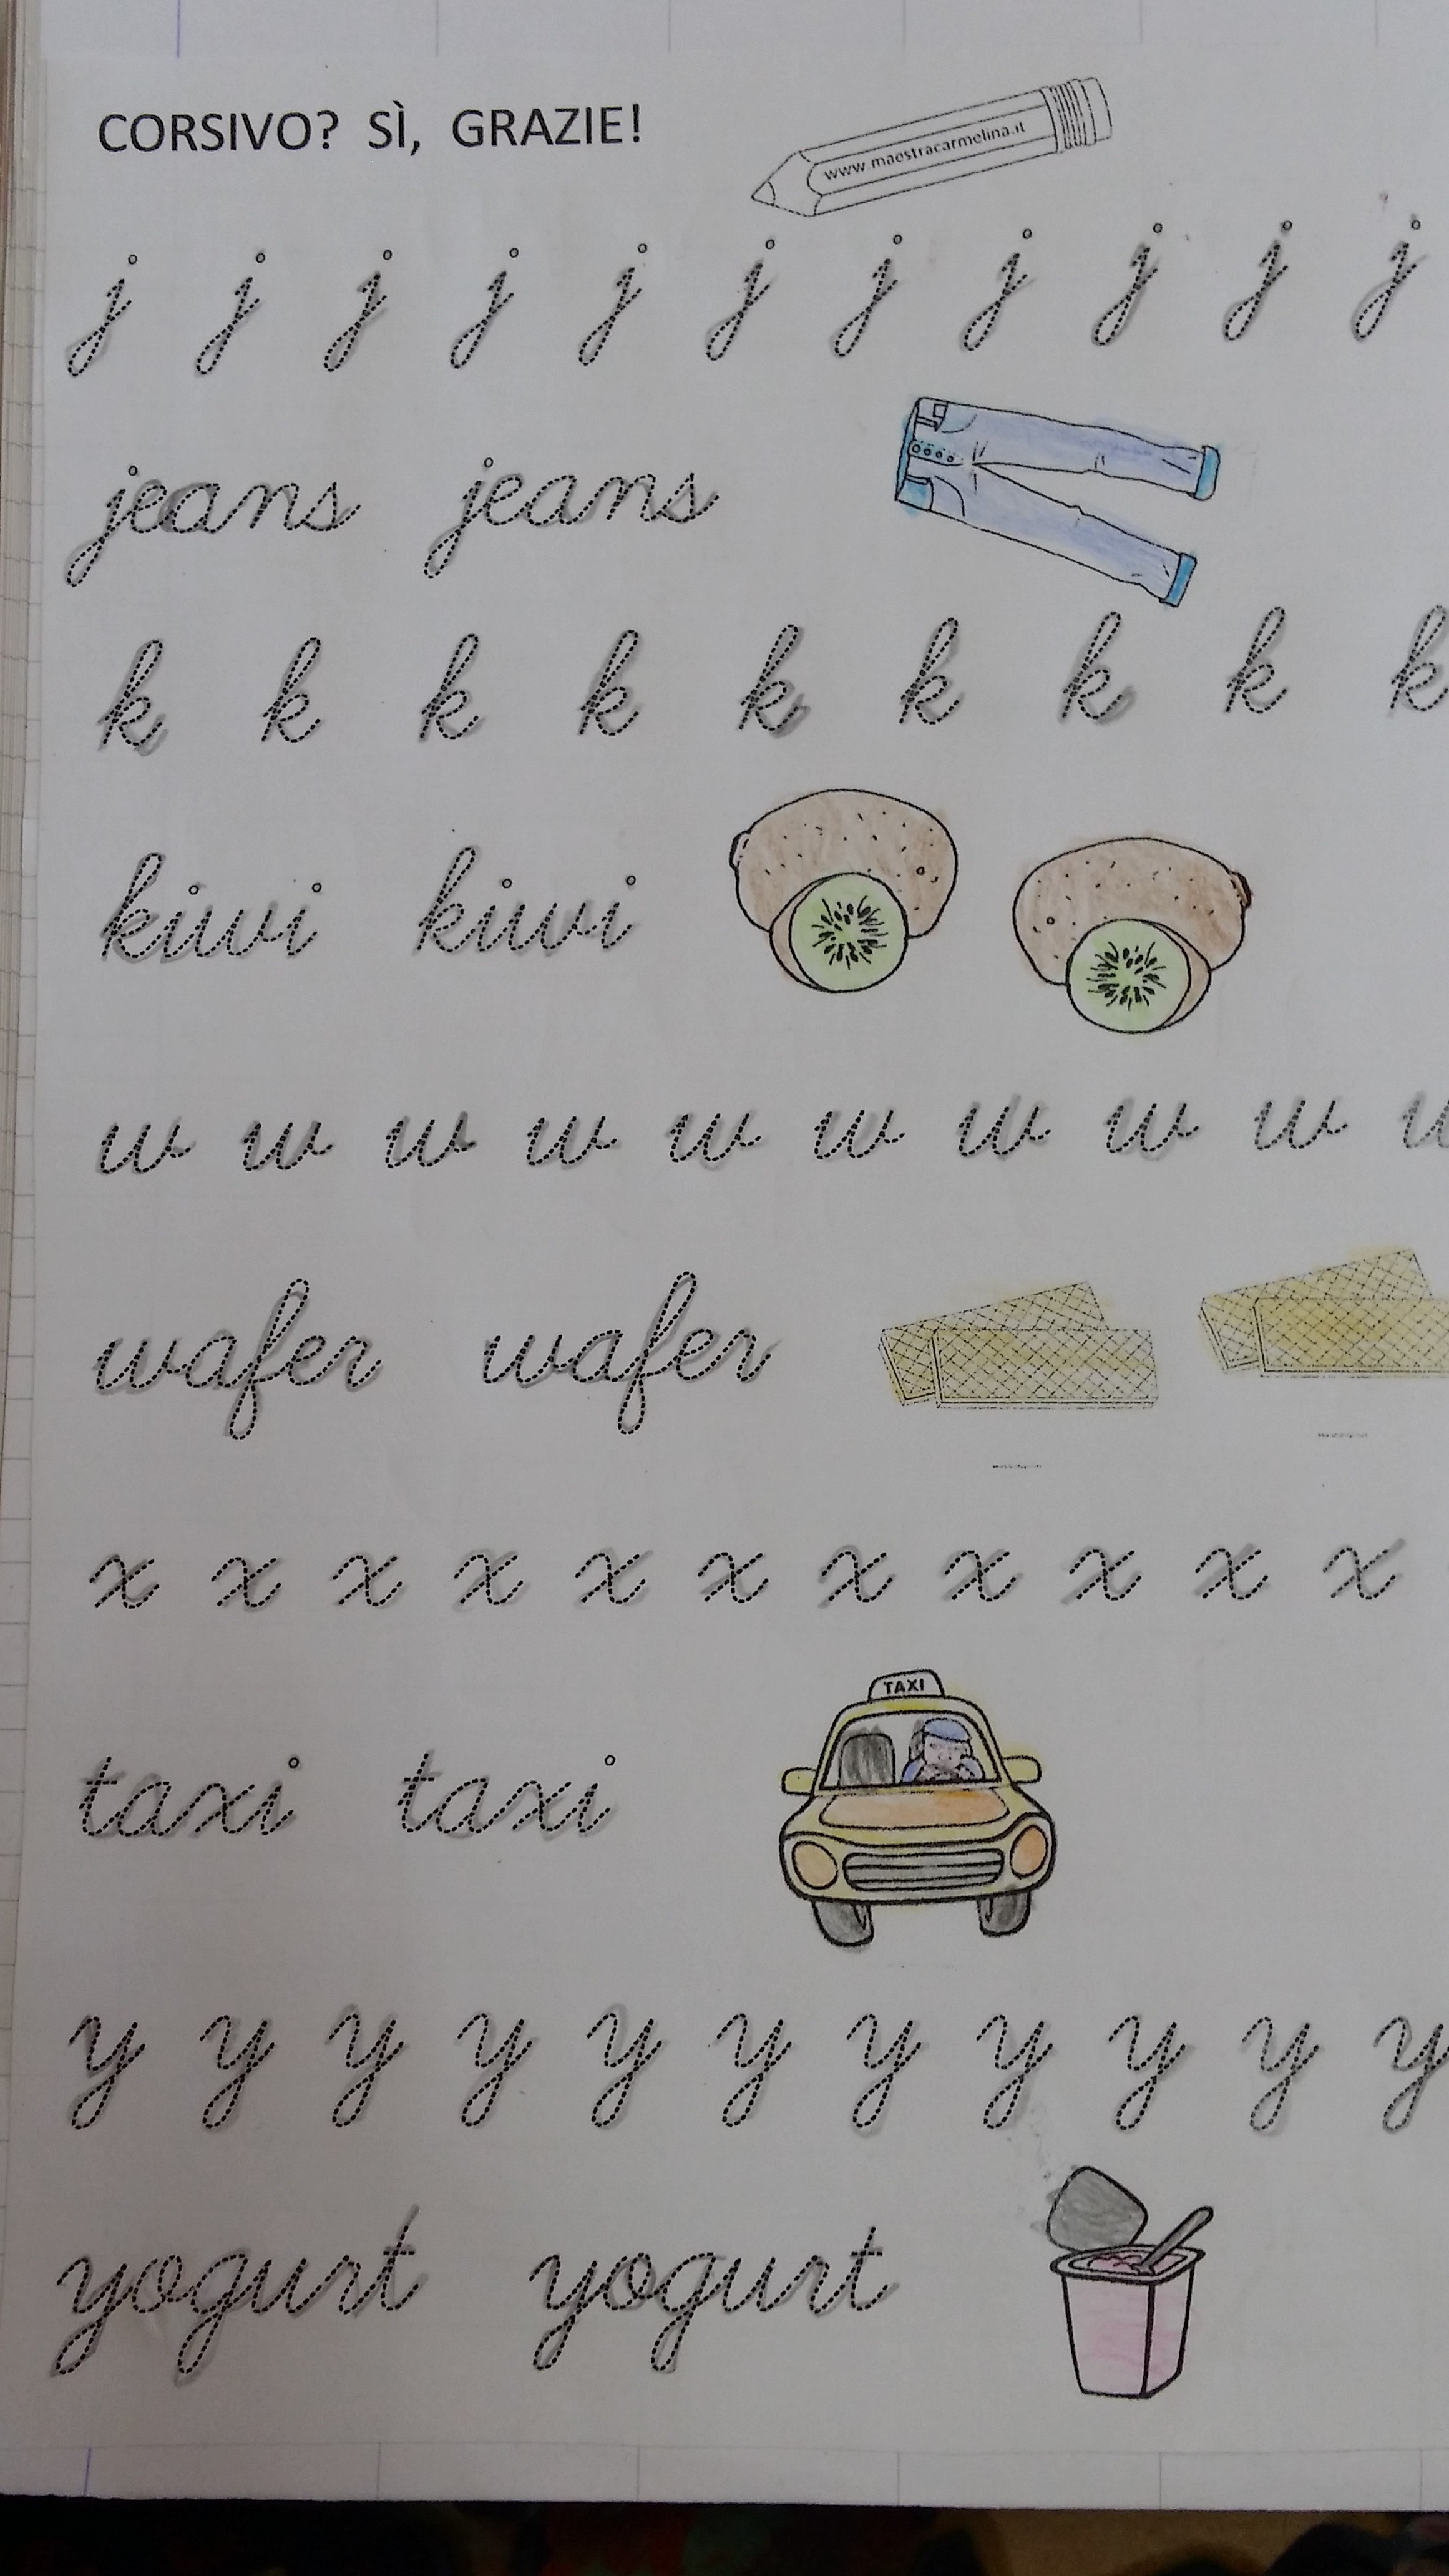 CORSIVO? SÌ, GRAZIE!
www.maestracarmelina.it
j j j j j j j j j j j
jeans jeans
k k k k k k k k k
kiwi kiwi
w w w w w w w w w w
wafer wafer
x x x x x x x x x x x
TAXI
taxi taxi
y y y y y y y y y y y
yogurt yogurt